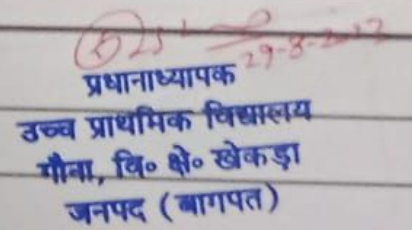 29-8-2022
प्रधानाध्यापक
उच्च प्राथमिक विद्यालय
गौना, वि० क्षे० खेकड़ा
जनपद (बागपत)